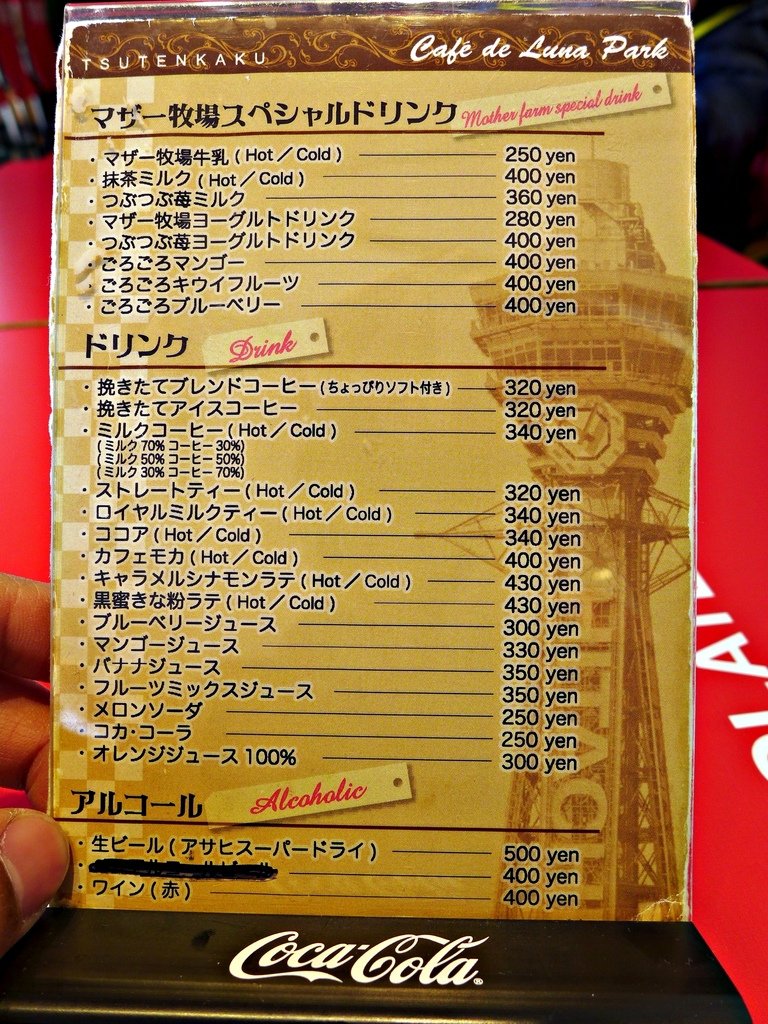 TSUTENKAKU
Café de Luna Park
マザー牧場スペシャルドリンク Mother farm special drink
・マザー牧場牛乳 ( Hot／Cold ) 250 yen
・抹茶ミルク ( Hot／Cold ) 400 yen
・つぶつぶ苺ミルク 360 yen
・マザー牧場ヨーグルトドリンク 280 yen
・つぶつぶ苺ヨーグルトドリンク 400 yen
・ごろごろマンゴー 400 yen
・ごろごろキウイフルーツ 400 yen
・ごろごろブルーベリー 400 yen
ドリンク Drink
・挽きたてブレンドコーヒー ( ちょっぴりソフト付き ) 320 yen
・挽きたてアイスコーヒー 320 yen
・ミルクコーヒー ( Hot／Cold ) 340 yen
( ミルク 70% コーヒー 30%)
( ミルク 50% コーヒー 50%)
( ミルク 30% コーヒー 70%)
・ストレートティー ( Hot／Cold ) 320 yen
・ロイヤルミルクティー ( Hot／Cold ) 340 yen
・ココア ( Hot／Cold ) 340 yen
・カフェモカ ( Hot／Cold ) 400 yen
・キャラメルシナモンラテ ( Hot／Cold ) 430 yen
・黒蜜きな粉ラテ ( Hot／Cold ) 430 yen
・ブルーベリージュース 300 yen
・マンゴージュース 330 yen
・バナナジュース 350 yen
・フルーツミックスジュース 350 yen
・メロンソーダ 250 yen
・コカ・コーラ 250 yen
・オレンジジュース 100% 300 yen
アルコール Alcoholic
・生ビール ( アサヒスーパードライ ) 500 yen
・ 400 yen
・ワイン ( 赤 ) 400 yen
Coca-Cola®